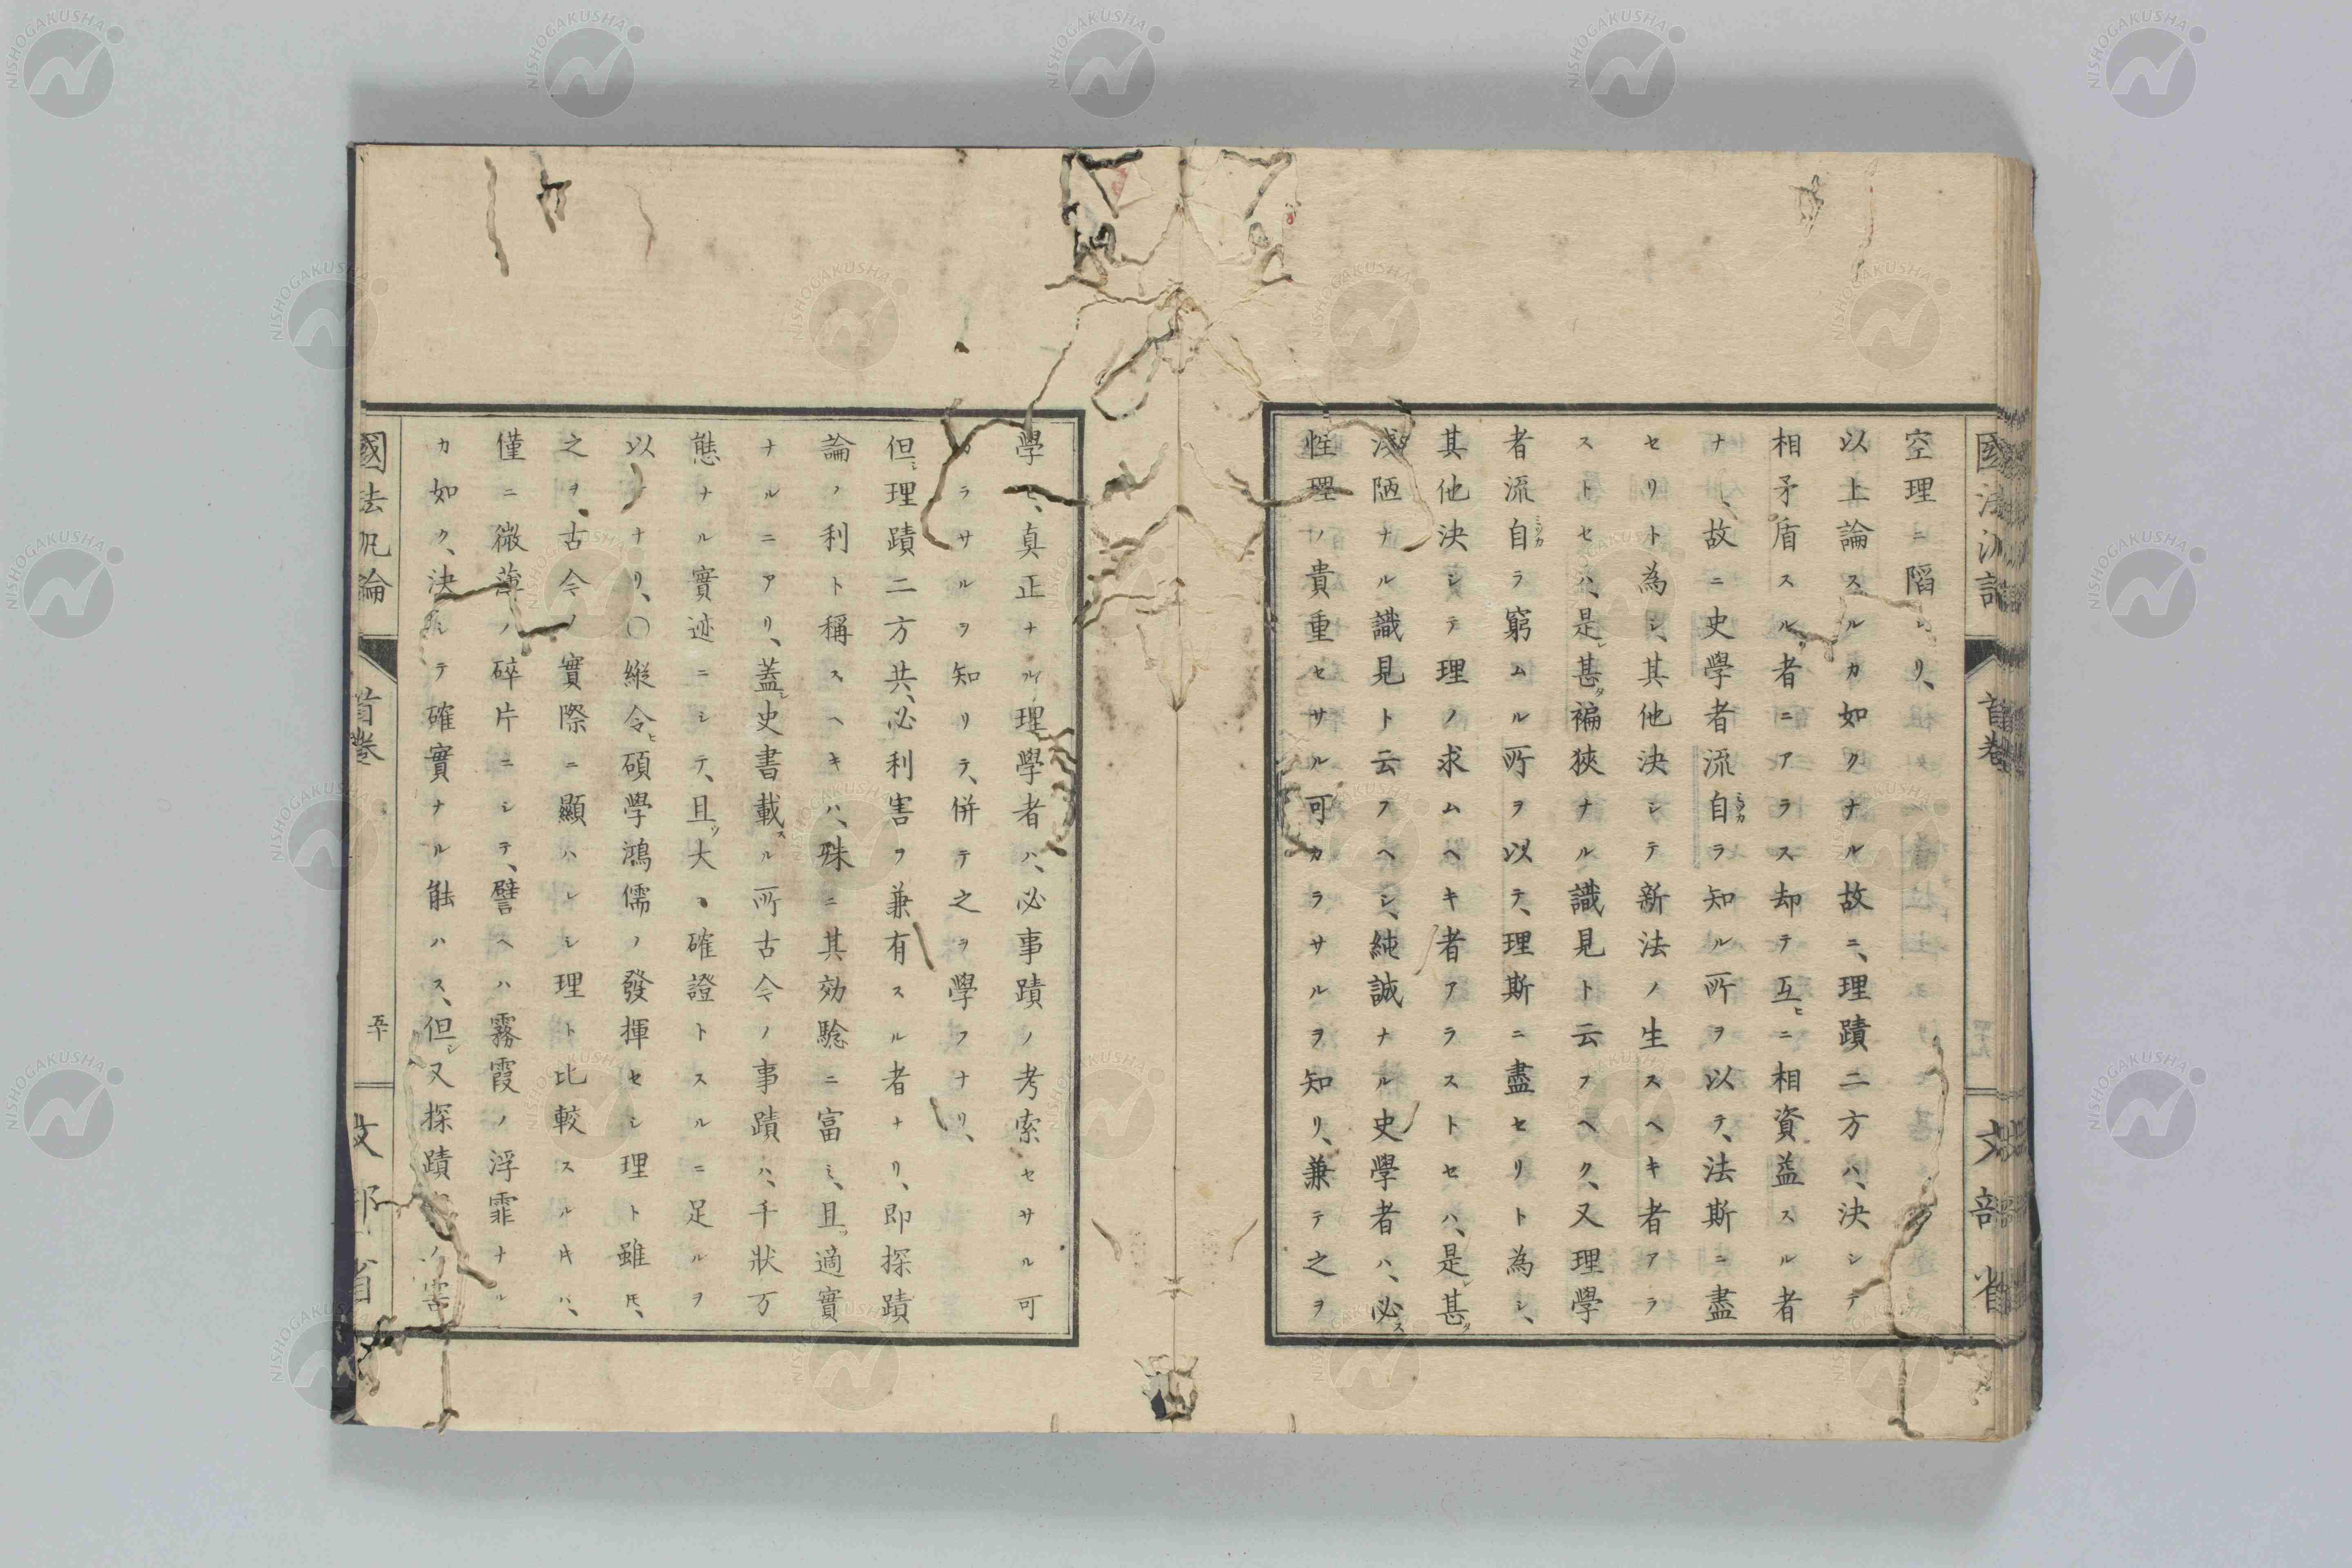 空理ニ陷レリ、
以上論スルカ如クナル故ニ、理蹟二方ハ、決シテ
相矛盾スル者ニアラス却テ互ヒニ相資益スル者
ナレ、故ニ史學者流自ミツカラ知ル所ヲ以テ、法斯ニ盡
セリト為シ、其他決シテ新法ノ生スヘキ者アラ
ストセハ、是レ甚タ褊狹ナル識見ト云フヘク、又理學
者流自ミツカラ窮ムル所ヲ以テ、理斯ニ盡セリト為シ、
其他決シテ理ノ求ムヘキ者アラストセハ、是レ甚タ
淺陋ナル識見ト云フヘシ、純誠ナル史學者ハ、必ス
性理ノ貴重セサル可カラサルヲ知リ、兼テ之ヲ
學ヒ、真正ナル理學者ハ、必事蹟ノ考索セサル可
カラサルヲ知リテ、併テ之ヲ學フナリ、
但シ理蹟二方共、必利害ヲ兼有スル者ナリ、即探蹟
論ノ利ト稱スヘキハ、殊ニ其効騐ニ富ミ、且ツ適實
ナルニアリ、蓋シ史書載スル所古今ノ事蹟ハ、千狀万
態ナル實迹ニシテ、且ツ大ニ確證トスルニ足ルヲ
以テナリ、〇縱令ヒ碩學鴻儒ノ發揮セシ理ト雖𪜈、
之ヲ、古今ノ實際ニ顯ハレシ理ト比較スル𪜈ハ、
僅ニ微薄ノ碎片ニシテ、譬ヘハ霧霞ノ浮霏ナル
カ如ク、決シテ確實ナル能ハス、但シ又探蹟ノ害
國法汎論
首卷
五十
文部省
國法汎論
首卷
文部省
NISHOGAKUSHA